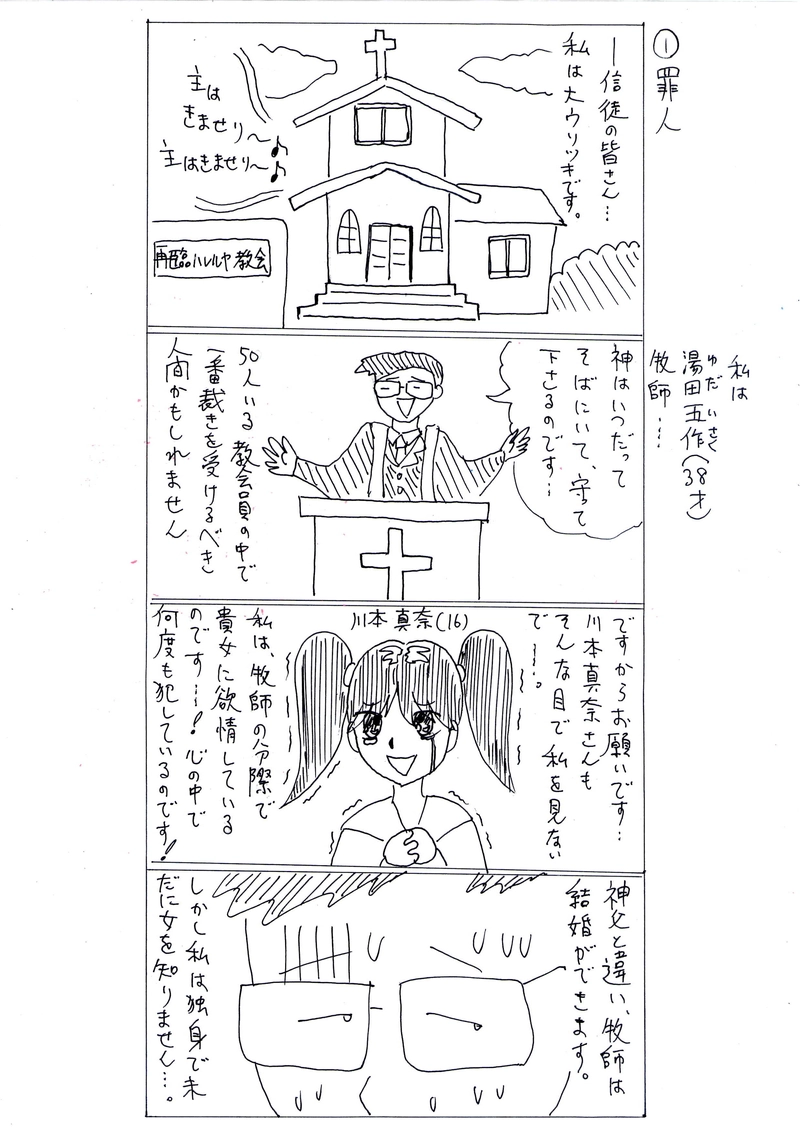 ①罪人
―信徒の皆さん…
私は大ウソツキです。
主は
きませり～
主はきませり～♪
再臨ハレルヤ教会
私は
湯田五作(38才)
ゆだいさく
牧師……
神はいつだって
そばにいて、守って
下さるのです…
50人いる教会員の中で
一番裁きを受けるべき
人間かもしれません
ですからお願いです…
川本真奈さんも
そんな目で私を見ない
で……。
川本真奈(16)
私は、牧師の分際で
貴女に欲情している
のです……!心の中で
何度も犯しているのです!
神父と違い、牧師は
結婚ができます。
しかし私は独身で未
だに女を知りません…。